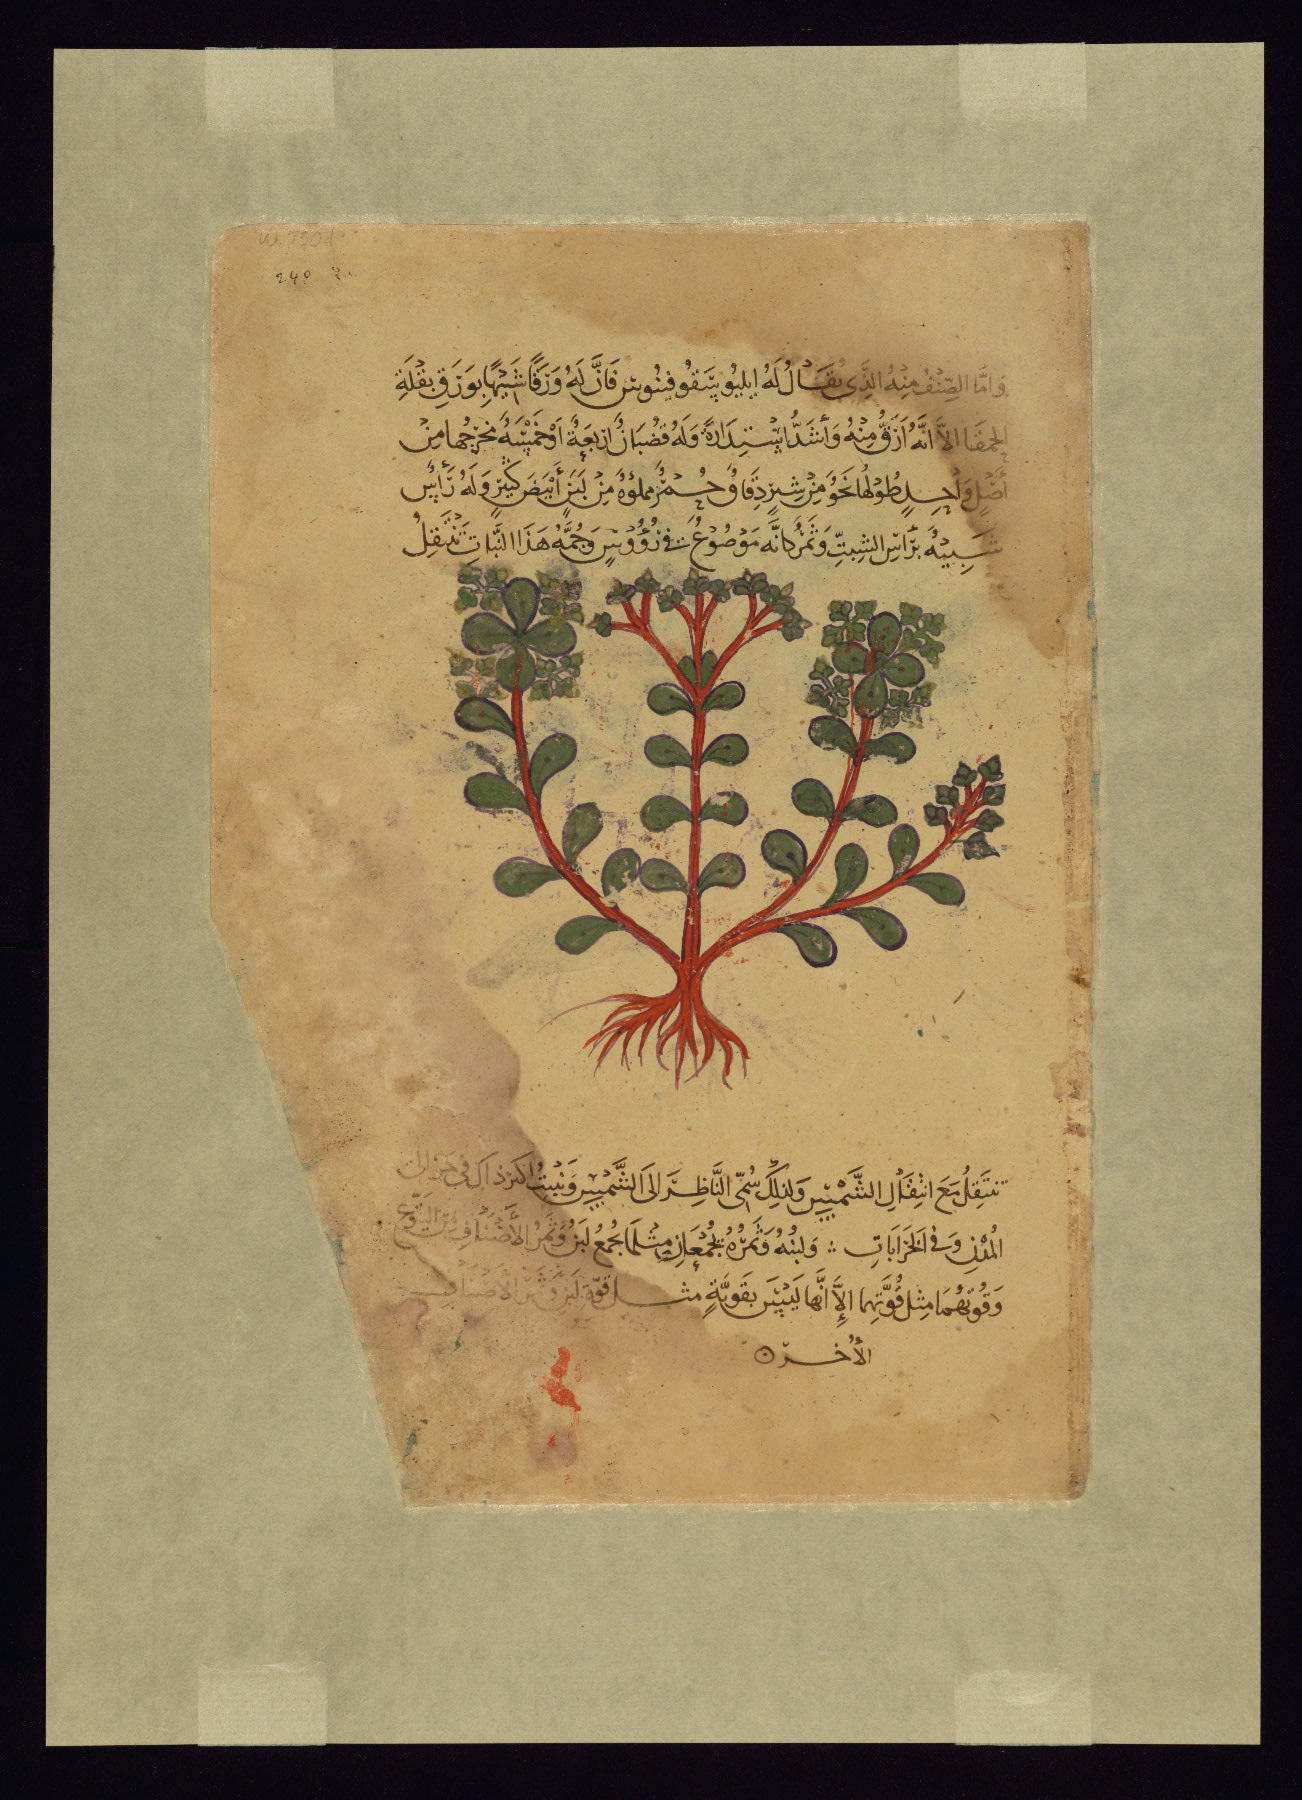 W.750d
240
وَامَّا الصِّنْفُ مِنْهُ الذَّى يُقَالُ لَهُ ايليُو سقُوفيُوس فَانَّ لَهُ وَرَقًا شَبِيْهًا بِوَرَقِ بقْلَةِ
الحمقَا الاَّ انَّهُ اَرَقُّ مِنْهُ وَأشَدُّ اسْتِدَارَةً وَلَهُ قُضْبَانٌ ارْبعَةٌ اَوْخَمْسَةٌ مخرَجُها مِنْ
أصْلٍ وَاحِدٍ طُوْلُها نَحْوٌ مِنْ شِبْرٍ دِقَاقٌ حُمْرٌ مملؤةٌ مِنْ لَبَنٍ أبْيَضَ كَثِيْرٍ وَلَهُ رَأسٌ
شَبِيْهٌ برَأسِ الشِبِتِّ وَثَمَرٌ كانَّه مَوْضُوعٌ فى رُؤُوْسٍ وَجُمَّةُ هَذَا النَّبَاتِ تَنْتَقِلُ
تنتَقِلُ مَعَ انْتِقَالِ الشَّمْسِ وَلذلِكَ سُمِّى النَّاظِرَ الىَ الشَّمْسِ وَنَبتُ اكثر ذاكَ فى خراب
المُدْنِ وَفى الخَرَابَاتِ وَلبنُهُ وَثَمَرُهُ يُجْمَعَانِ مِثْلمَا يُجْمعُ لَبَنُ وَثَمَرُ الأصْنَافِ مِنَ اليَتُّوعِ
وَقُوتهُمَا مِثل قُوَّتِهِما الاَّ انَّها لَيْسَ بقَويَّةٍ مثل قوّة لَبَنِ وَثَمَرِ الاَصْنَافِ
الأُخرِ